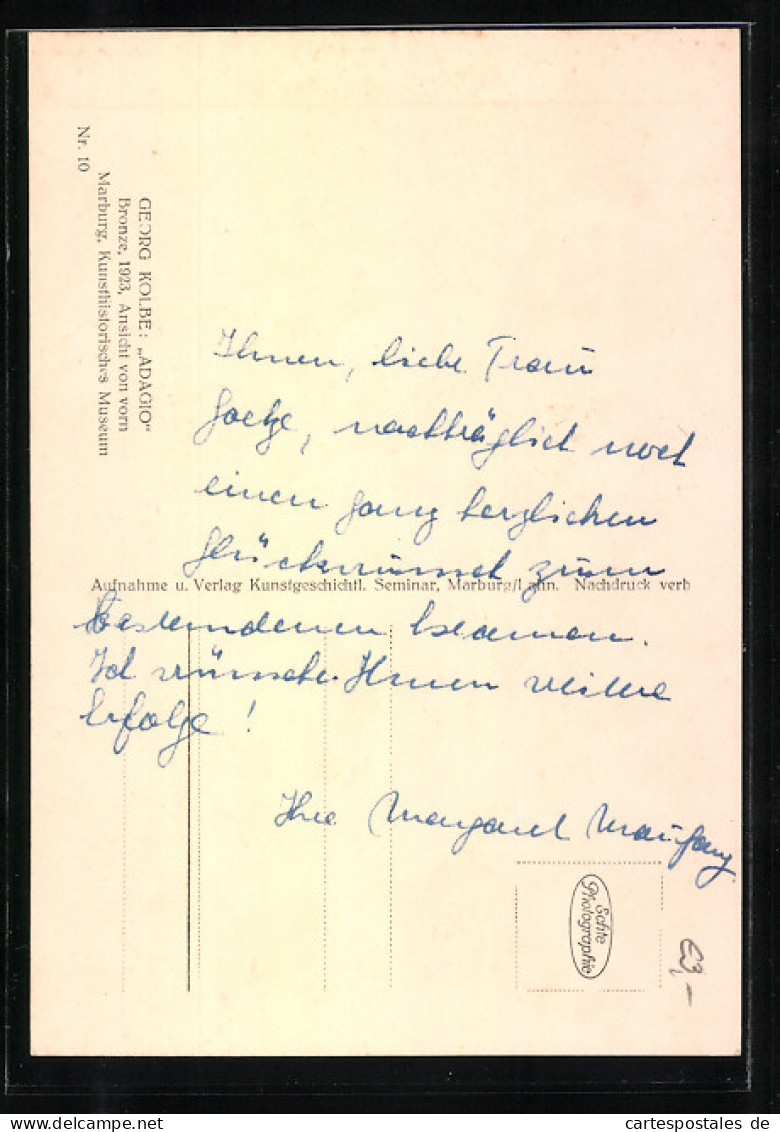 Nr. 10
GEORG KOLBE: „ADAGIO“
Bronze, 1923, Ansicht von vorn
Marburg, Kunsthistorisches Museum
Ihnen, liebe Frau
Goetze, nachträglich noch
einen ganz herzlichen
Glückwunsch zum
Aufnahme u. Verlag Kunstgeschichtl. Seminar, Marburg/Lahn. Nachdruck verb
bestandenen Examen.
Ich wünsche Ihnen weitere
Erfolge!
Ihre Margaret
Echte
Photographie
€3,–
the-west.delcampe.net
cartespostales de